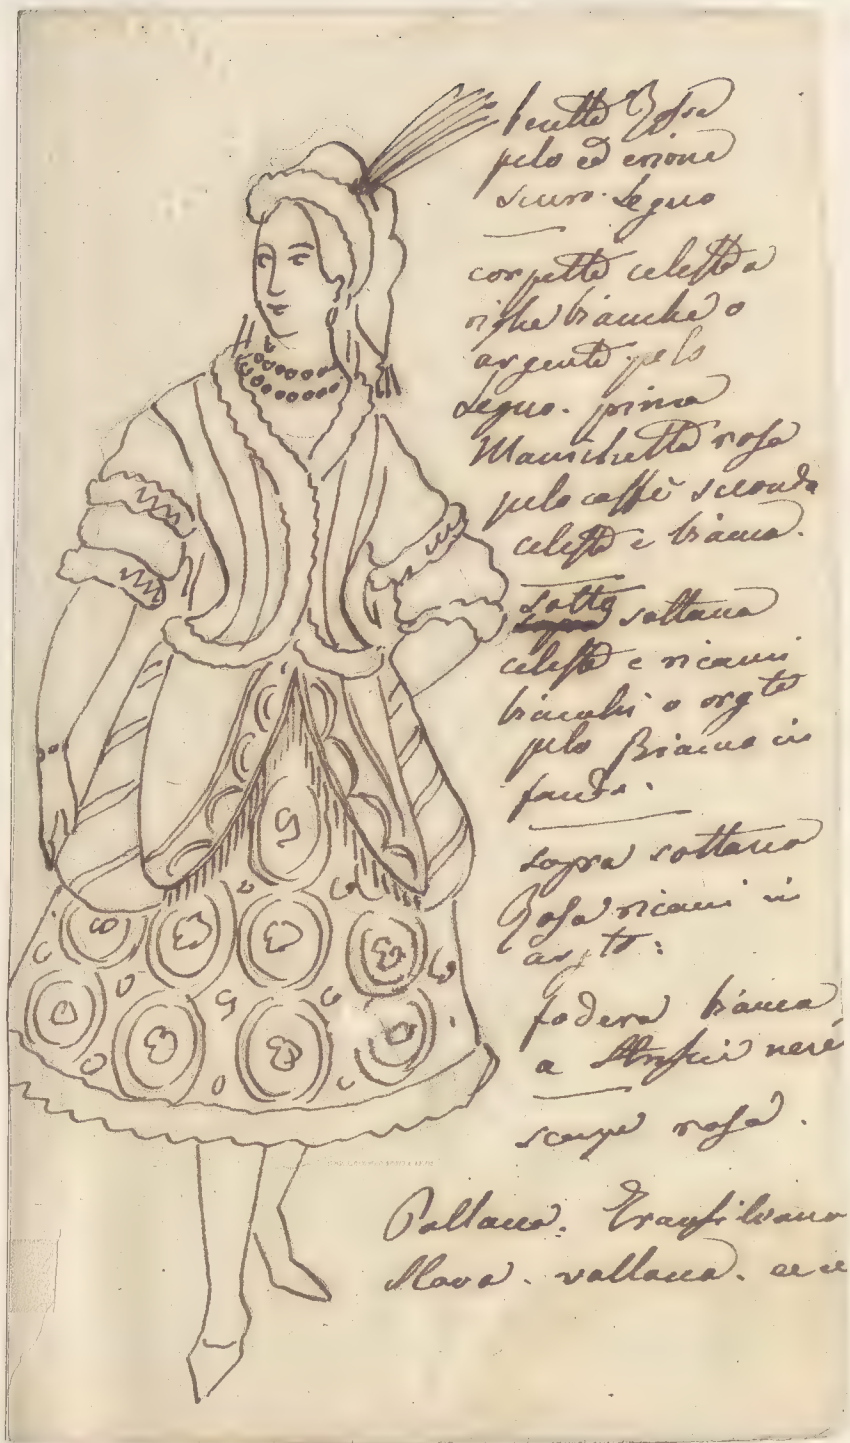 beretto Rosa
pelo ed erione
scuro. Segno
corpetto celeste a
righe bianche o
argento pelo
Segno. prima
Manichetta rosa
pelo caffè seconda
celeste e bianca.
sotto sottana
celeste e ricami
bianchi o argto
pelo Bianco in
fondo.
sopra sottana
Rosa ricami in
argto:
fodera bianca
a Strisci nere
scarpe rosa.
Pollacca. Transilvana
Slava. vallacca. ecc